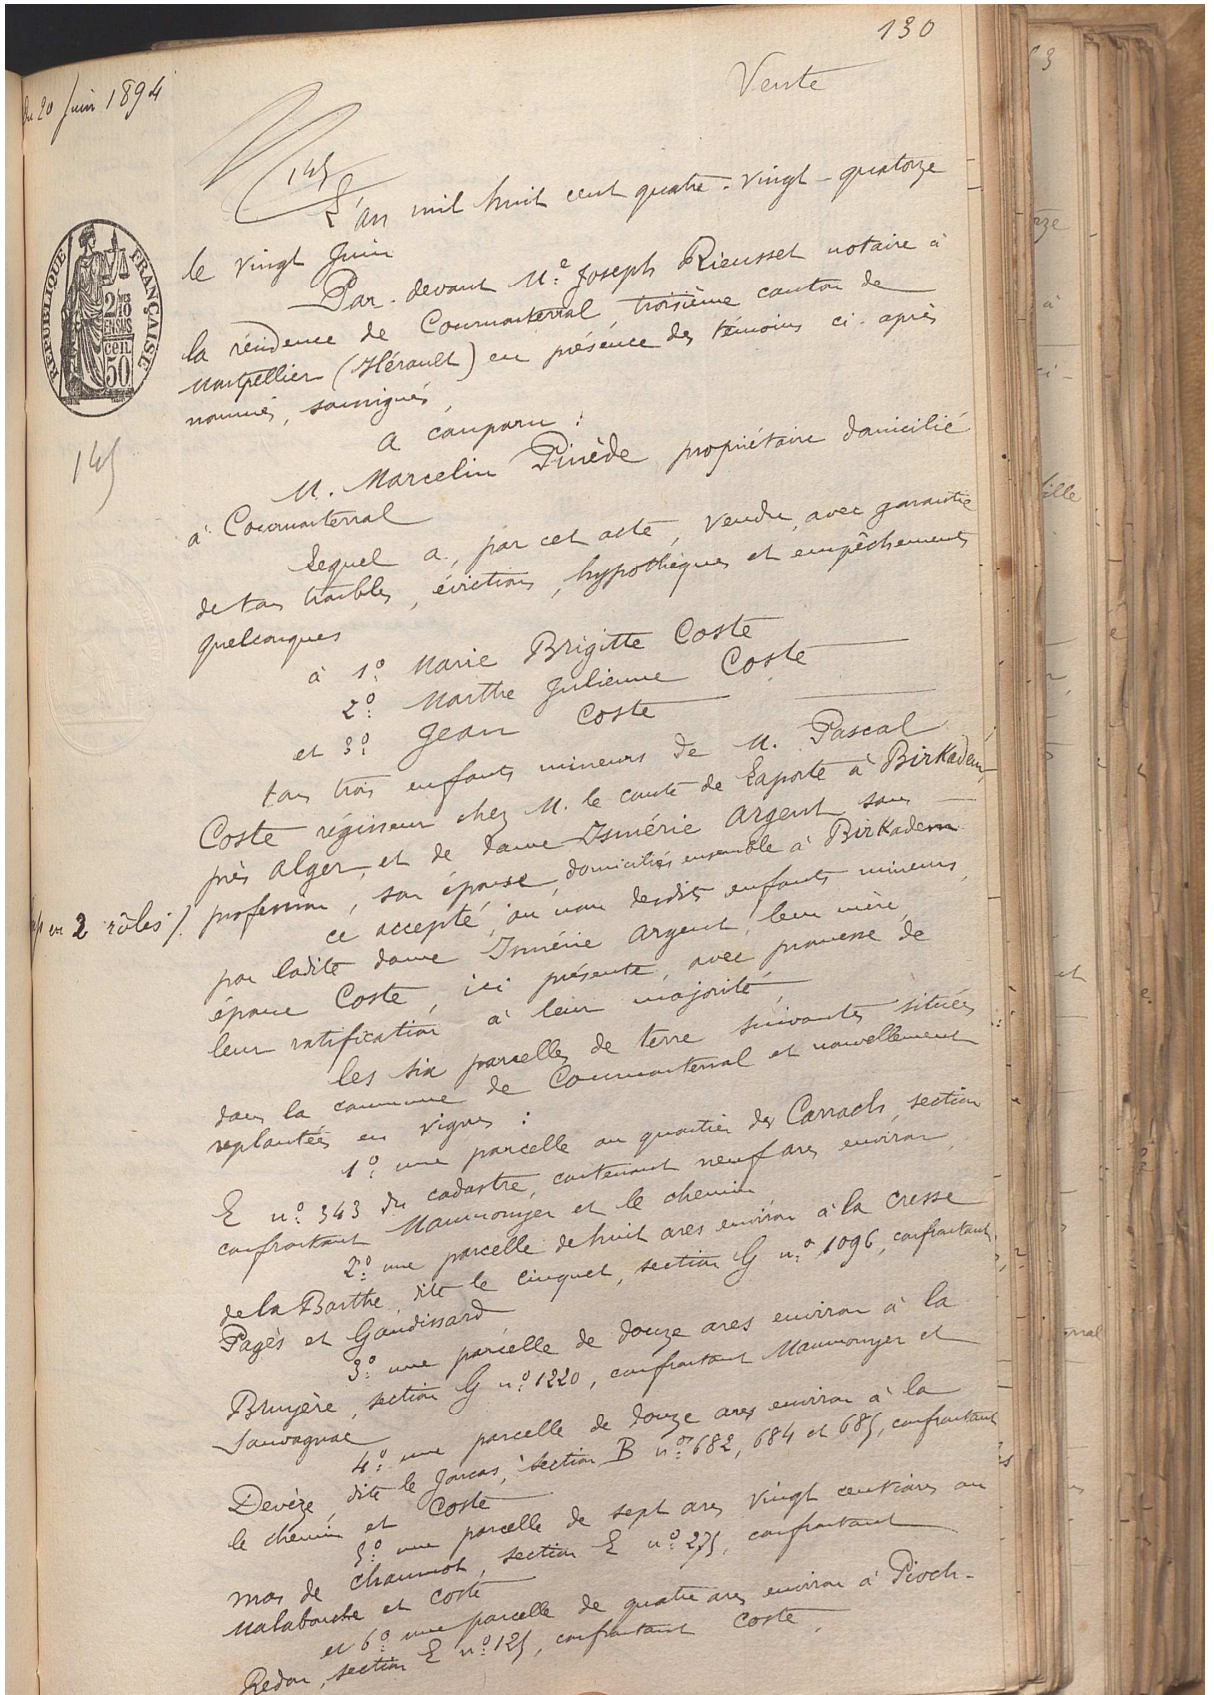 130
Du 20 Juin 1894
Vente
145
L'an mil huit cent quatre-vingt-quatorze
le vingt Juin
Par-devant Me Joseph Rieusset notaire à
la résidence de Cournonterral troisième canton de
Montpellier (Hérault) en présence des témoins ci-après
nommés, soussignés,
A comparu :
M. Marcelin Pinède propriétaire domicilié
à Cournonterral
Lequel a, par cet acte, vendu, avec garantie
de tous troubles, évictions, hypothèques et empêchements
quelconques
à 1º Marie Brigitte Coste
2º Marthe Julienne Coste
et 3º Jean Coste
tous trois enfants mineurs de M. Pascal
Coste régisseur chez M. le comte de Laporte à Birkadem
près Alger, et de dame Isménie Argent sans
profession, son épouse, domiciliés ensemble à Birkadem
ce accepté, au nom desdits enfants mineurs,
par ladite dame Isménie Argent, leur mère,
épouse Coste, ici présente, avec promesse de
leur ratification à leur majorité,
les six parcelles de terre suivantes situées
dans la commune de Cournonterral et nouvellement
replantées en vignes :
1º une parcelle au quartier des Carrachs, section
E nº 343 du cadastre, contenant neuf ares environ,
confrontant Maumonyer et le chemin,
2º une parcelle de huit ares environ à la Cresse
de la Barthe, dite le Cinquet, section G nº 1096, confrontant
Pagès et Gaudissard,
3º une parcelle de douze ares environ à la
Bruyère, section G nº 1220, confrontant Maumonyer et
Sauvagnac
4º une parcelle de douze ares environ à la
Devèze, dite le Joncas, section B nos 682, 684 et 685, confrontant
le chemin et Coste
5º une parcelle de sept ares vingt centiares au
mas de Chaumon, section E nº 275, confrontant
Malabouche et Coste
et 6º une parcelle de quatre ares environ à Pioch-
Redon, section E nº 125, confrontant Coste,
RÉPUBLIQUE FRANÇAISE
2/10
EN SUS
cen
50
145
en 2 rôles /.